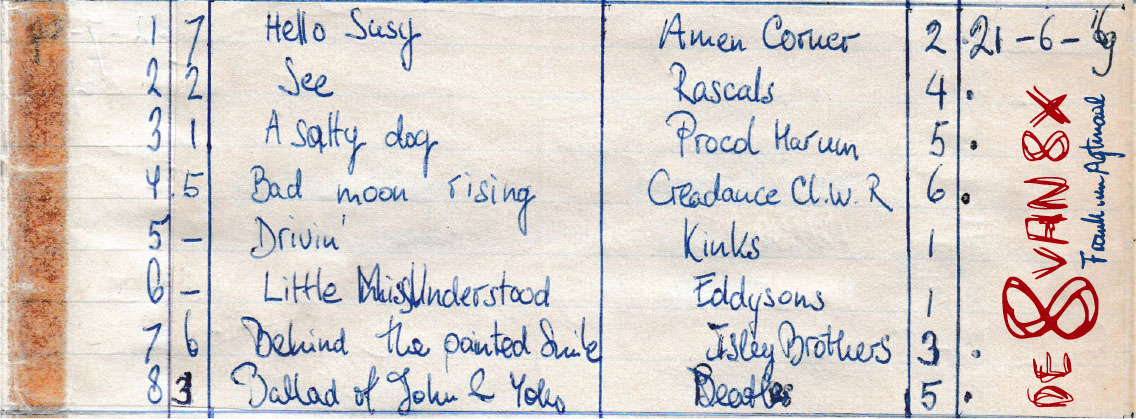 1 7 Hello Susy Amen Corner 2 . 21-6-'69
2 2 See Rascals 4 .
3 1 A salty dog Procol Harum 5 .
4 5 Bad moon rising Creadance Cl.W.R 6 .
5 - Drivin' Kinks 1
6 - Little MissUnderstood Eddysons 1
7 6 Behind the painted Smile Isley Brothers 3 .
8 3 Ballad of John & Yoko Beatles 5 .
DE 8 VAN 8X
Frank van Agtmaal